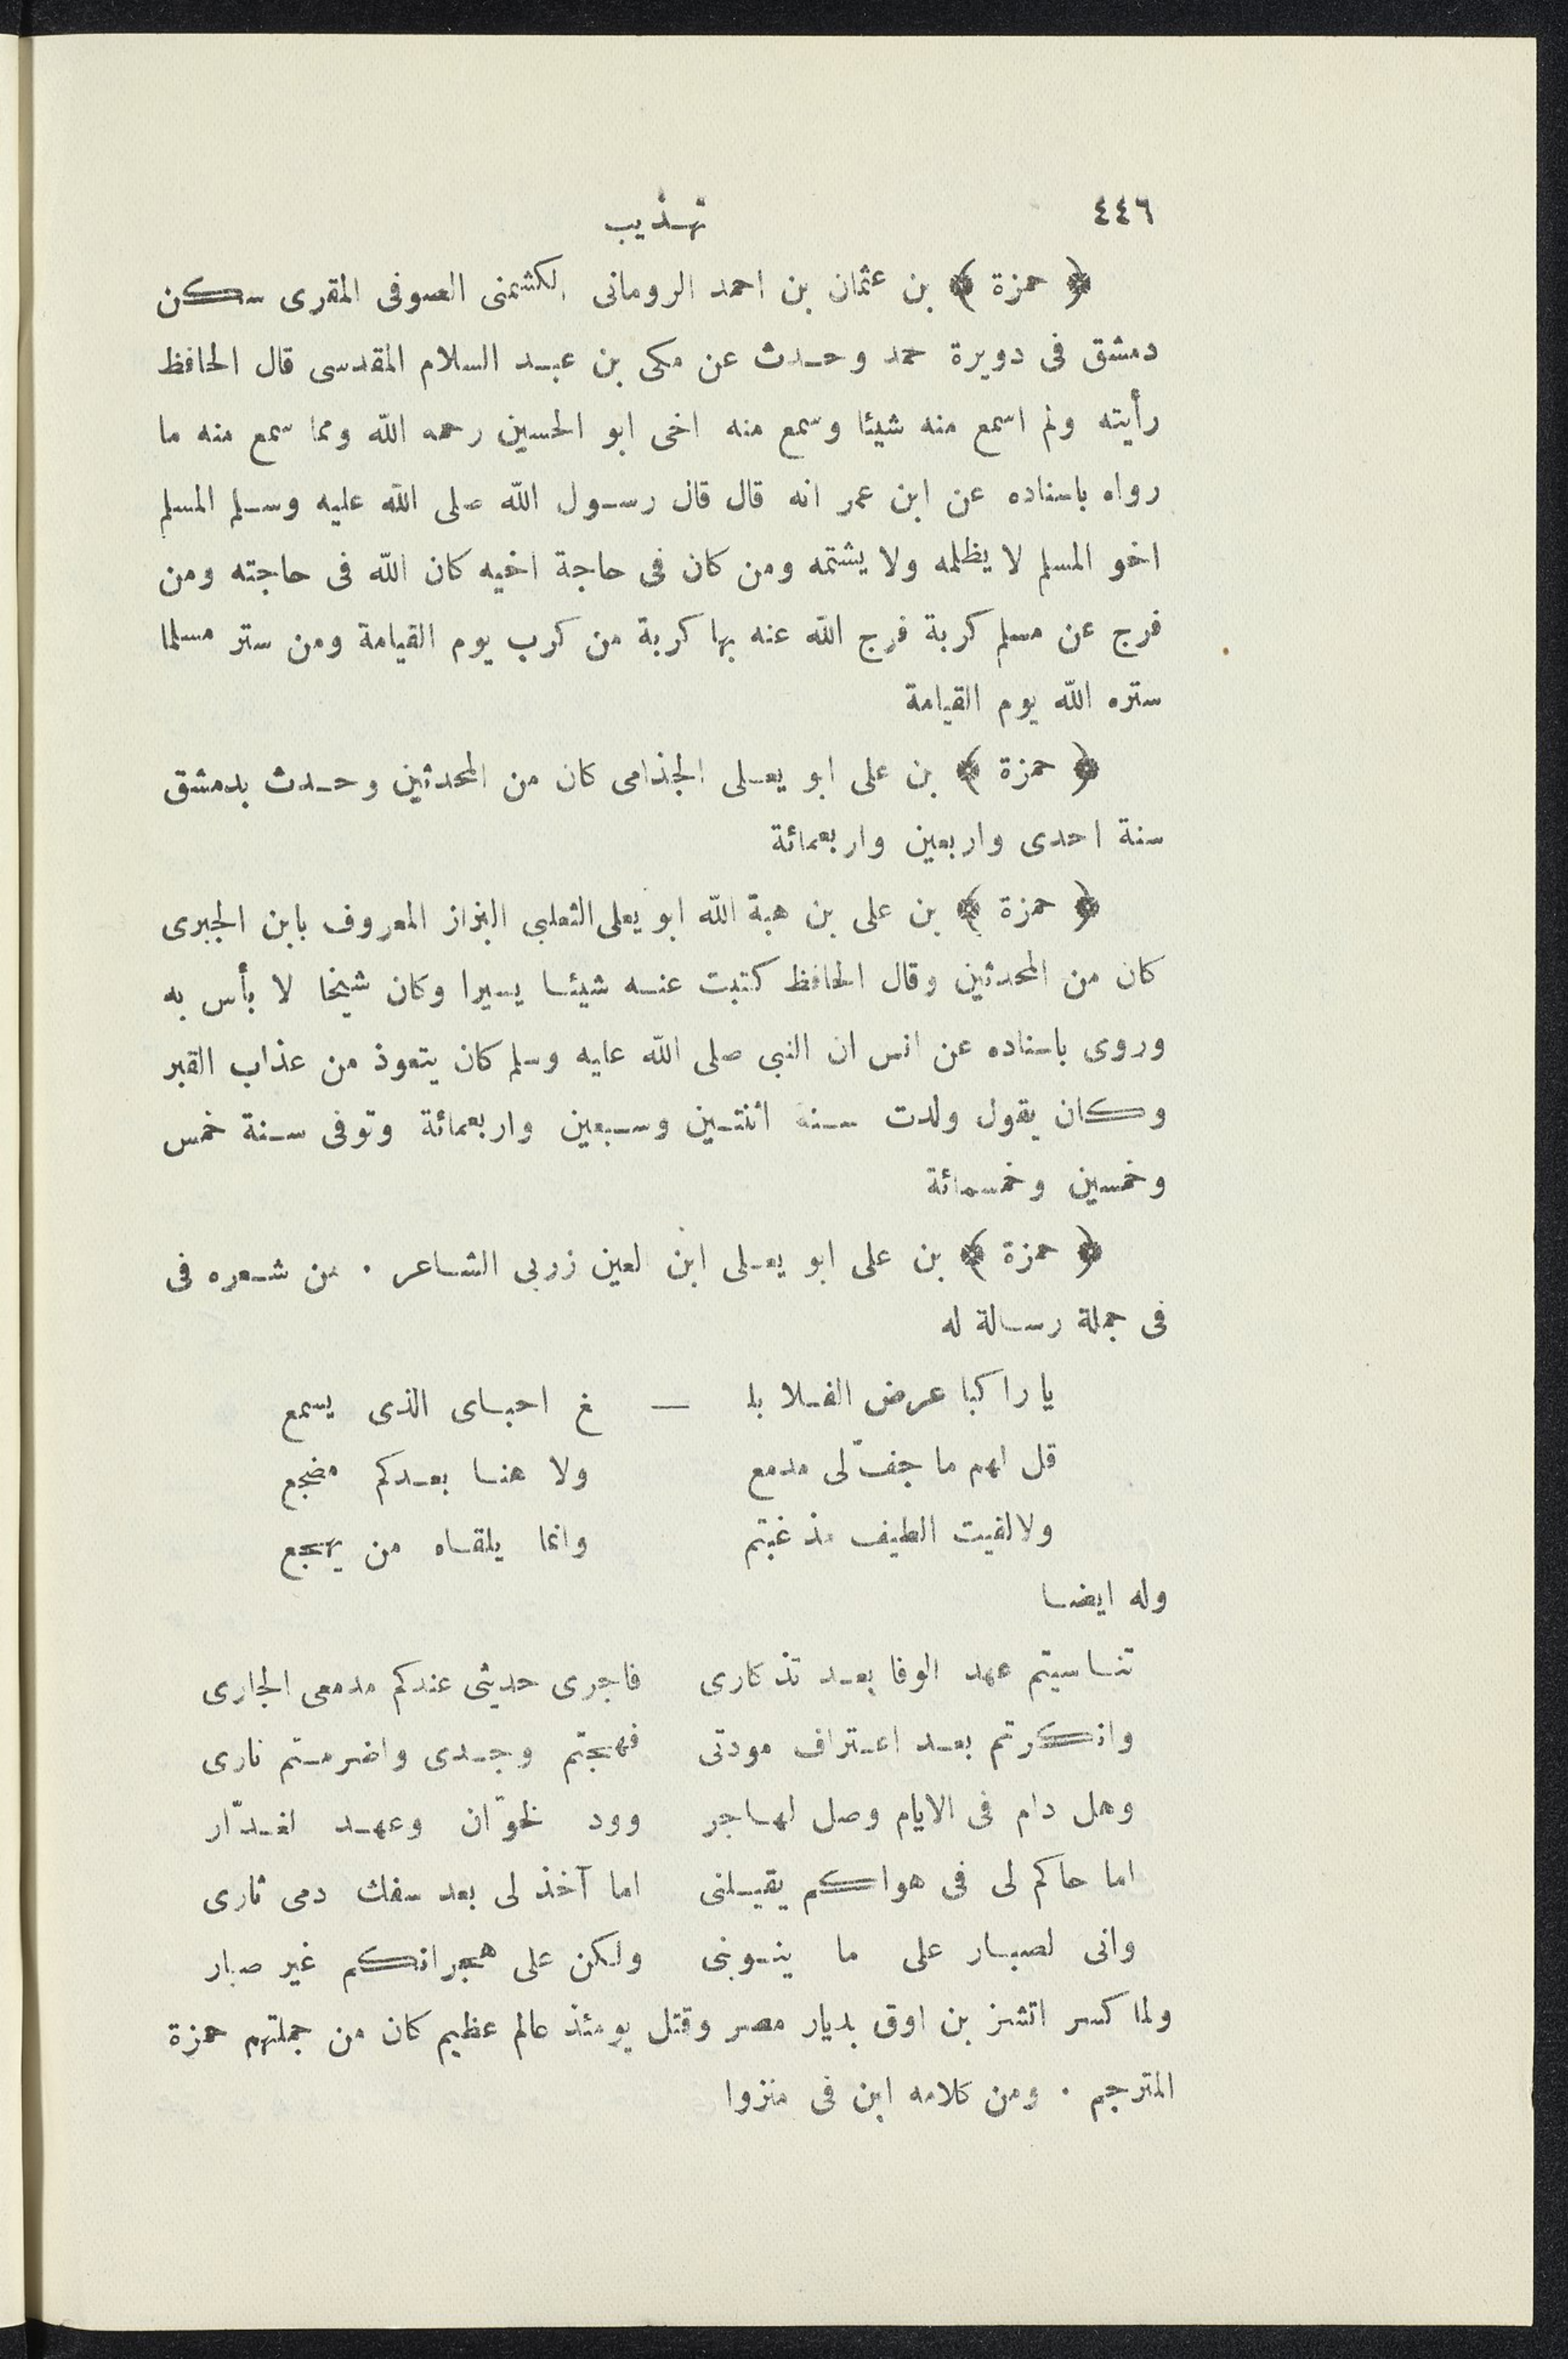 ٤٤٦
تهذيب
﴿ حمزة ﴾ بن عثمان بن احمد الرومانى الكشمنى الصوفى المقرى سكن
دمشق فى دويرة حمد وحدث عن مكى بن عبد السلام المقدسى قال الحافظ
رأيته ولم اسمع منه شيئا وسمع منه اخى ابو الحسين رحمه الله ومما سمع منه ما
رواه باسناده عن ابن عمر انه قال قال رسول الله صلى الله عليه وسلم المسلم
اخو المسلم لا يظلمه ولا يشتمه ومن كان فى حاجة اخيه كان الله فى حاجته ومن
فرج عن مسلم كربة فرج الله عنه بها كربة من كرب يوم القيامة ومن ستر مسلما
ستره الله يوم القيامة
﴿ حمزة ﴾ بن على ابو يعلى الجذامى كان من المحدثين وحدث بدمشق
سنة احدى واربعين واربعمائة
﴿ حمزة ﴾ بن على بن هبة الله ابو يعلى الثعلبى البزاز المعروف بابن الجبرى
كان من المحدثين وقال الحافظ كتبت عنه شيئا يسيرا وكان شيخا لا بأس به
وروى باسناده عن انس ان النبى صلى الله عليه وسلم كان يتعوذ من عذاب القبر
وكان يقول ولدت سنة اثنتين وسبعين واربعمائة وتوفى سنة خمس
وخمسين وخمسمائة
﴿ حمزة ﴾ بن على ابو يعلى ابن العين زربى الشاعر . من شعره فى
فى جملة رسالة له
يا راكبا عرض الفلا بلـ — ـغ احباى الذى يسمع
قل لهم ما جفّ لى مدمع ولا هنا بعدكم مضجع
ولا لقيت الطيف مذ غبتم وانما يلقاه من يهجع
وله ايضا
تناسيتم عهد الوفا بعد تذكارى فاجرى حديثى عندكم مدمعى الجارى
وانكرتم بعد اعتراف مودتى فهجتم وجدى واضرمتم نارى
وهل دام فى الايام وصل لهاجر وود لخوّان وعهد لغدّار
اما حاكم لى فى هواكم يقيلنى اما آخذ لى بعد سفك دمى ثارى
وانى لصبار على ما ينوبنى ولكن على هجرانكم غير صبار
ولما كسر اتشز بن اوق بديار مصر وقتل يومئذ عالم عظيم كان من جملتهم حمزة
المترجم . ومن كلامه ابن فى منزوا